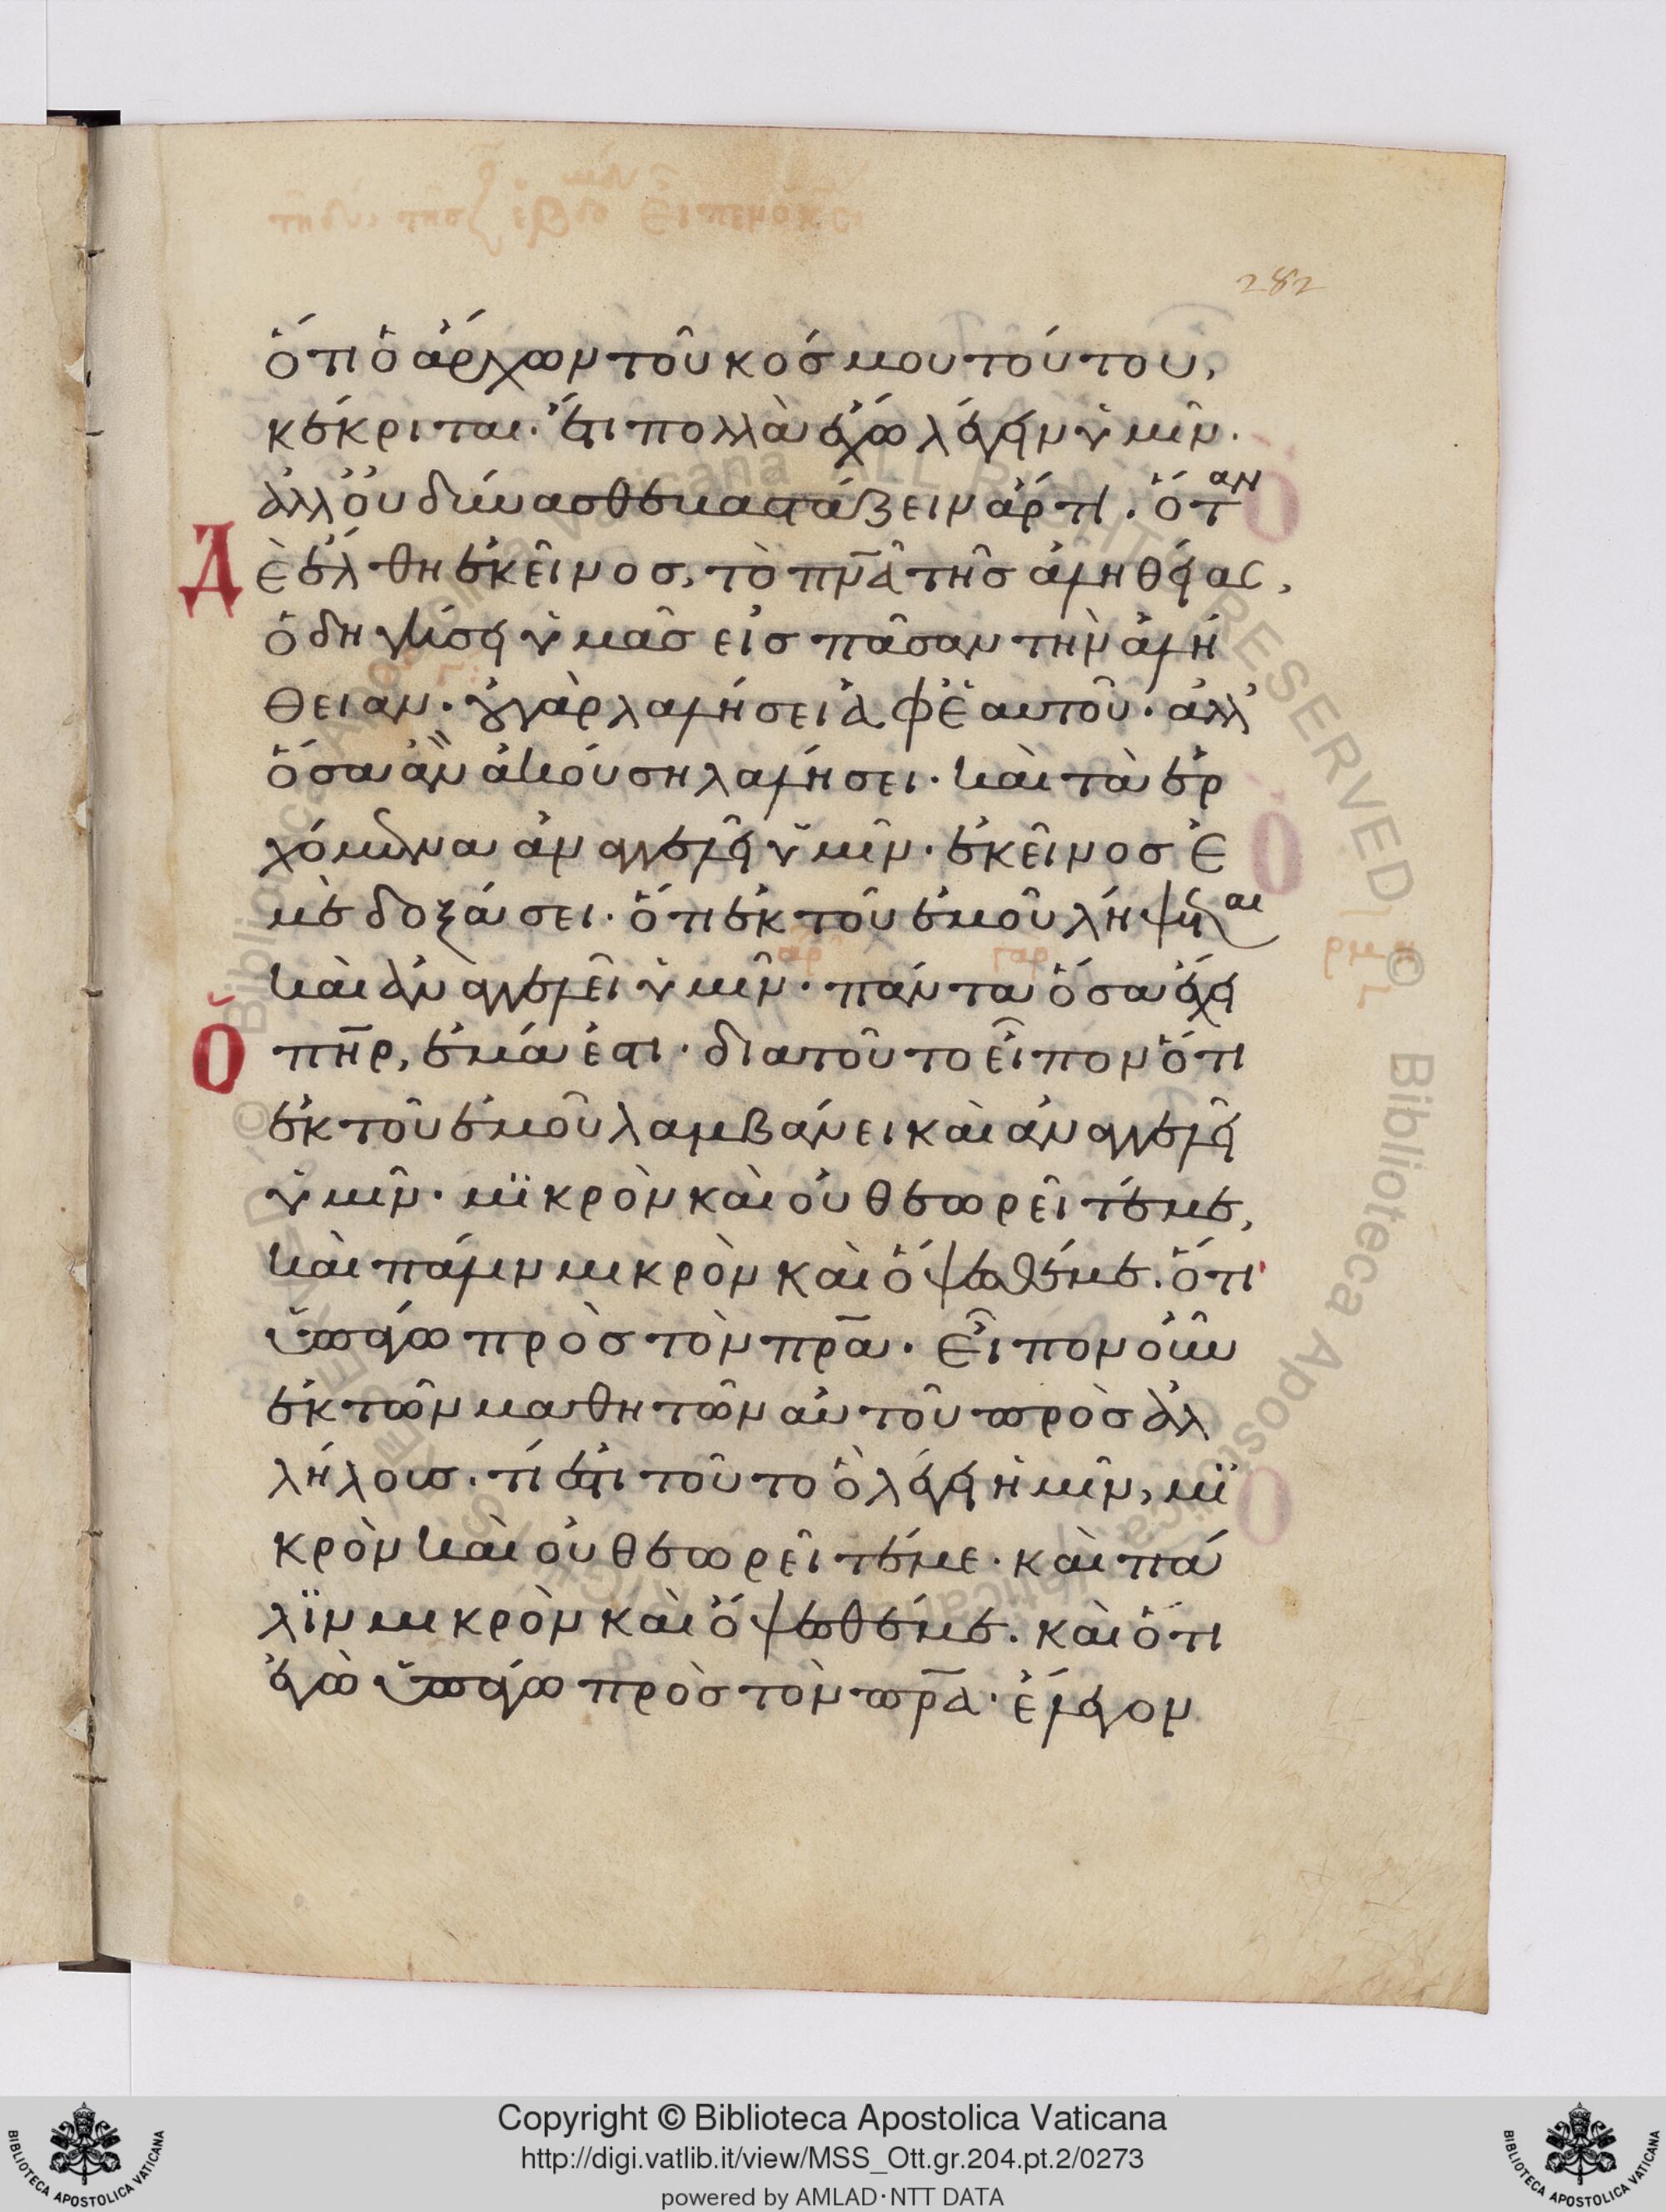 282
ὅτι ὁ ἄρχων τοῦ κόσμου τούτου,
κέκριται. ἔτι πολλὰ ἔχω λέγειν ὑμῖν.
ἀλλ' οὐ δύνασθε βαστάζειν ἄρτι. ὅταν
Δὲ ἔλθη ἐκεῖνος, τὸ πν̅α τῆς ἀληθείας,
ὁδηγήσει ὑμᾶς εἰς πᾶσαν τὴν ἀλή
θειαν. οὐ γὰρ λαλήσει ἀφ' ἑαυτοῦ. ἀλλ'
ὅσα ἂν ἀκούση λαλήσει. καὶ τὰ ἐρ
χόμενα ἀναγγελεῖ ὑμῖν. ἐκεῖνος ἐ
μὲ δοξάσει. ὅτι ἐκ τοῦ ἐμοῦ λήψεται
καὶ ἀναγγελεῖ ὑμῖν. πάντα ὅσα ἔχει
Ὁ πη̅ρ, ἐμά ἐστι. διατοῦτο εἶπον ὅτι
ἐκ τοῦ ἐμοῦ λαμβάνει καὶ ἀναγγελεῖ
ὑμῖν. μϊκρὸν καὶ οὐ θεωρεῖτέ με,
καὶ πάλιν μικρὸν καὶ ὄψεσθέ με. ὅτι
ὑπάγω πρὸς τὸν πρ̅α. Εἶπον οὖν
ἐκ τῶν μαθητῶν αὐτοῦ πρὸς ἀλ
λήλους. τί ἐστι τοῦτο ὃ λέγει ἡμῖν, μϊ
κρὸν καὶ οὐ θεωρεῖτέ με. καὶ πά
λϊν μικρὸν καὶ ὄψεσθέ με. καὶ ὅτι
ἐγὼ ὑπάγω πρὸς τὸν πρ̅α. ἔλεγον
© Biblioteca Apostolica Vaticana ALL RIGHTS RESERVED
Copyright © Biblioteca Apostolica Vaticana
http://digi.vatlib.it/view/MSS_Ott.gr.204.pt.2/0273
powered by AMLAD·NTT DATA
BIBLIOTECA APOSTOLICA VATICANA
BIBLIOTECA APOSTOLICA VATICANA